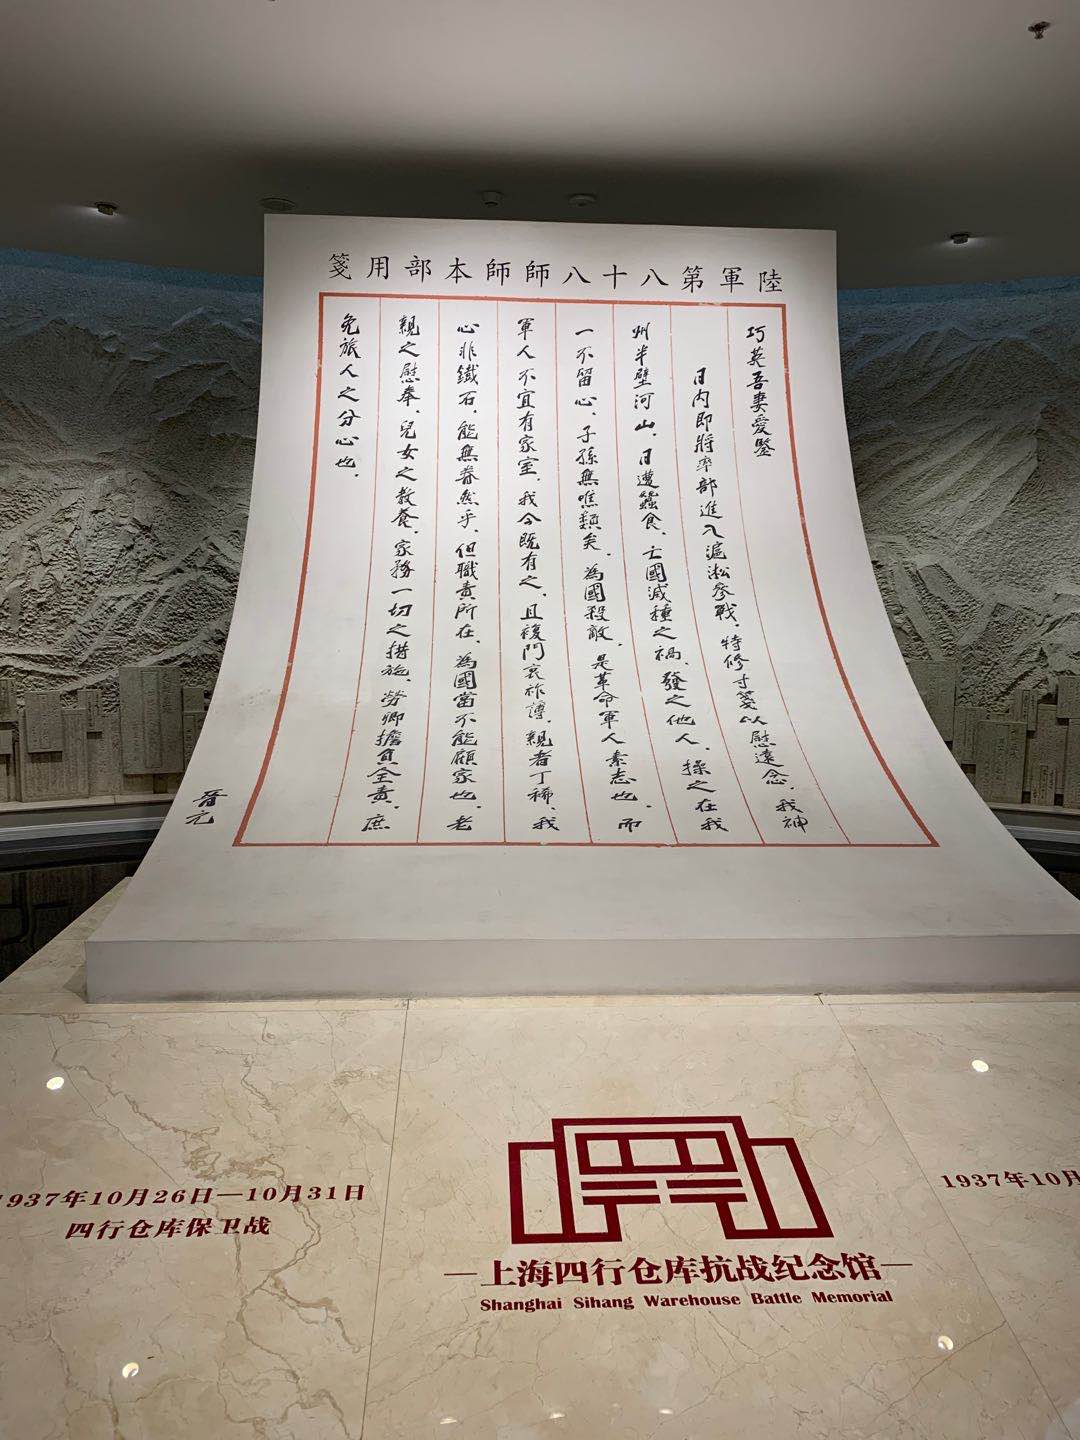 陸軍第八十八師師本部用箋
巧英吾妻愛鑒
日内即將率部進入滬淞參戰，特修寸箋以慰遠念，我神
州半壁河山，日遭蠶食，亡國滅種之禍，發之他人，操之在我
一不留心，子孫無噍類矣，為國殺敵，是革命軍人素志也，而
軍人不宜有家室，我今既有之，且複門衰祚薄，親者丁稀，我
心非鐵石，能無眷然乎，但職責所在，為國當不能顧家也，老
親之慰奉，兒女之教養，家務一切之措施，勞卿擔負全責，庶
免旅人之分心也，
晉元
1937年10月26日—10月31日
四行仓库保卫战
上海四行仓库抗战纪念馆
Shanghai Sihang Warehouse Battle Memorial
1937年10月